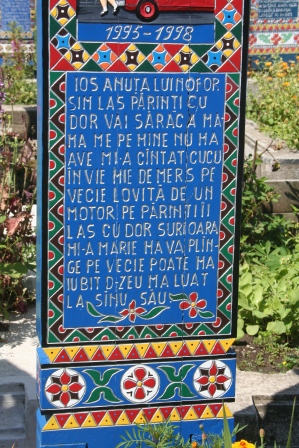 1995-1998
IOS ANUTA LUI NOFOR
SIN LAS PĂRINTI CU
DOR VAI SĂRACA MA
MA ME PE MINE NU MA
AVE MI-A CÎNTAT CUCU
ÎN VIE MIE DE MERS PE
VECIE LOVITĂ DE UN
MOTOR PE PĂRINTI II
LAS CU DOR SURIOARA
MI-A MARIE MA VA PLÎN-
GE PE VECIE POATE MA
IUBIT D-ZEU MA LUAT
LA SÎNU SĂU